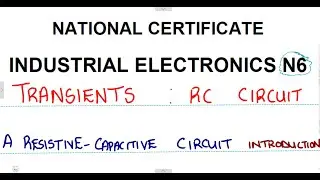 NATIONAL CERTIFICATE
INDUSTRIAL ELECTRONICS N6
TRANSIENTS : RC CIRCUIT
A RESISTIVE-CAPACITIVE CIRCUIT INTRODUCTION